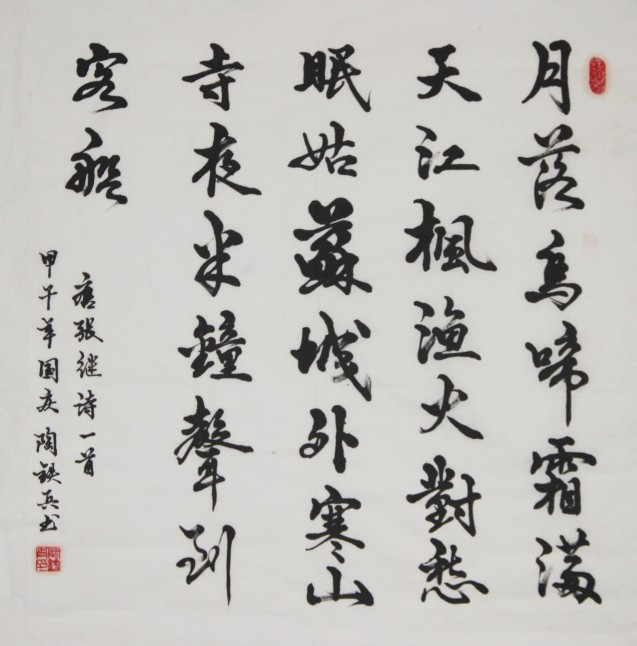 月落烏啼霜滿
天江楓漁火對愁
眠姑蘇城外寒山
寺夜半鐘聲到
客船
唐张继诗一首
甲午年国庆陶铁兵书